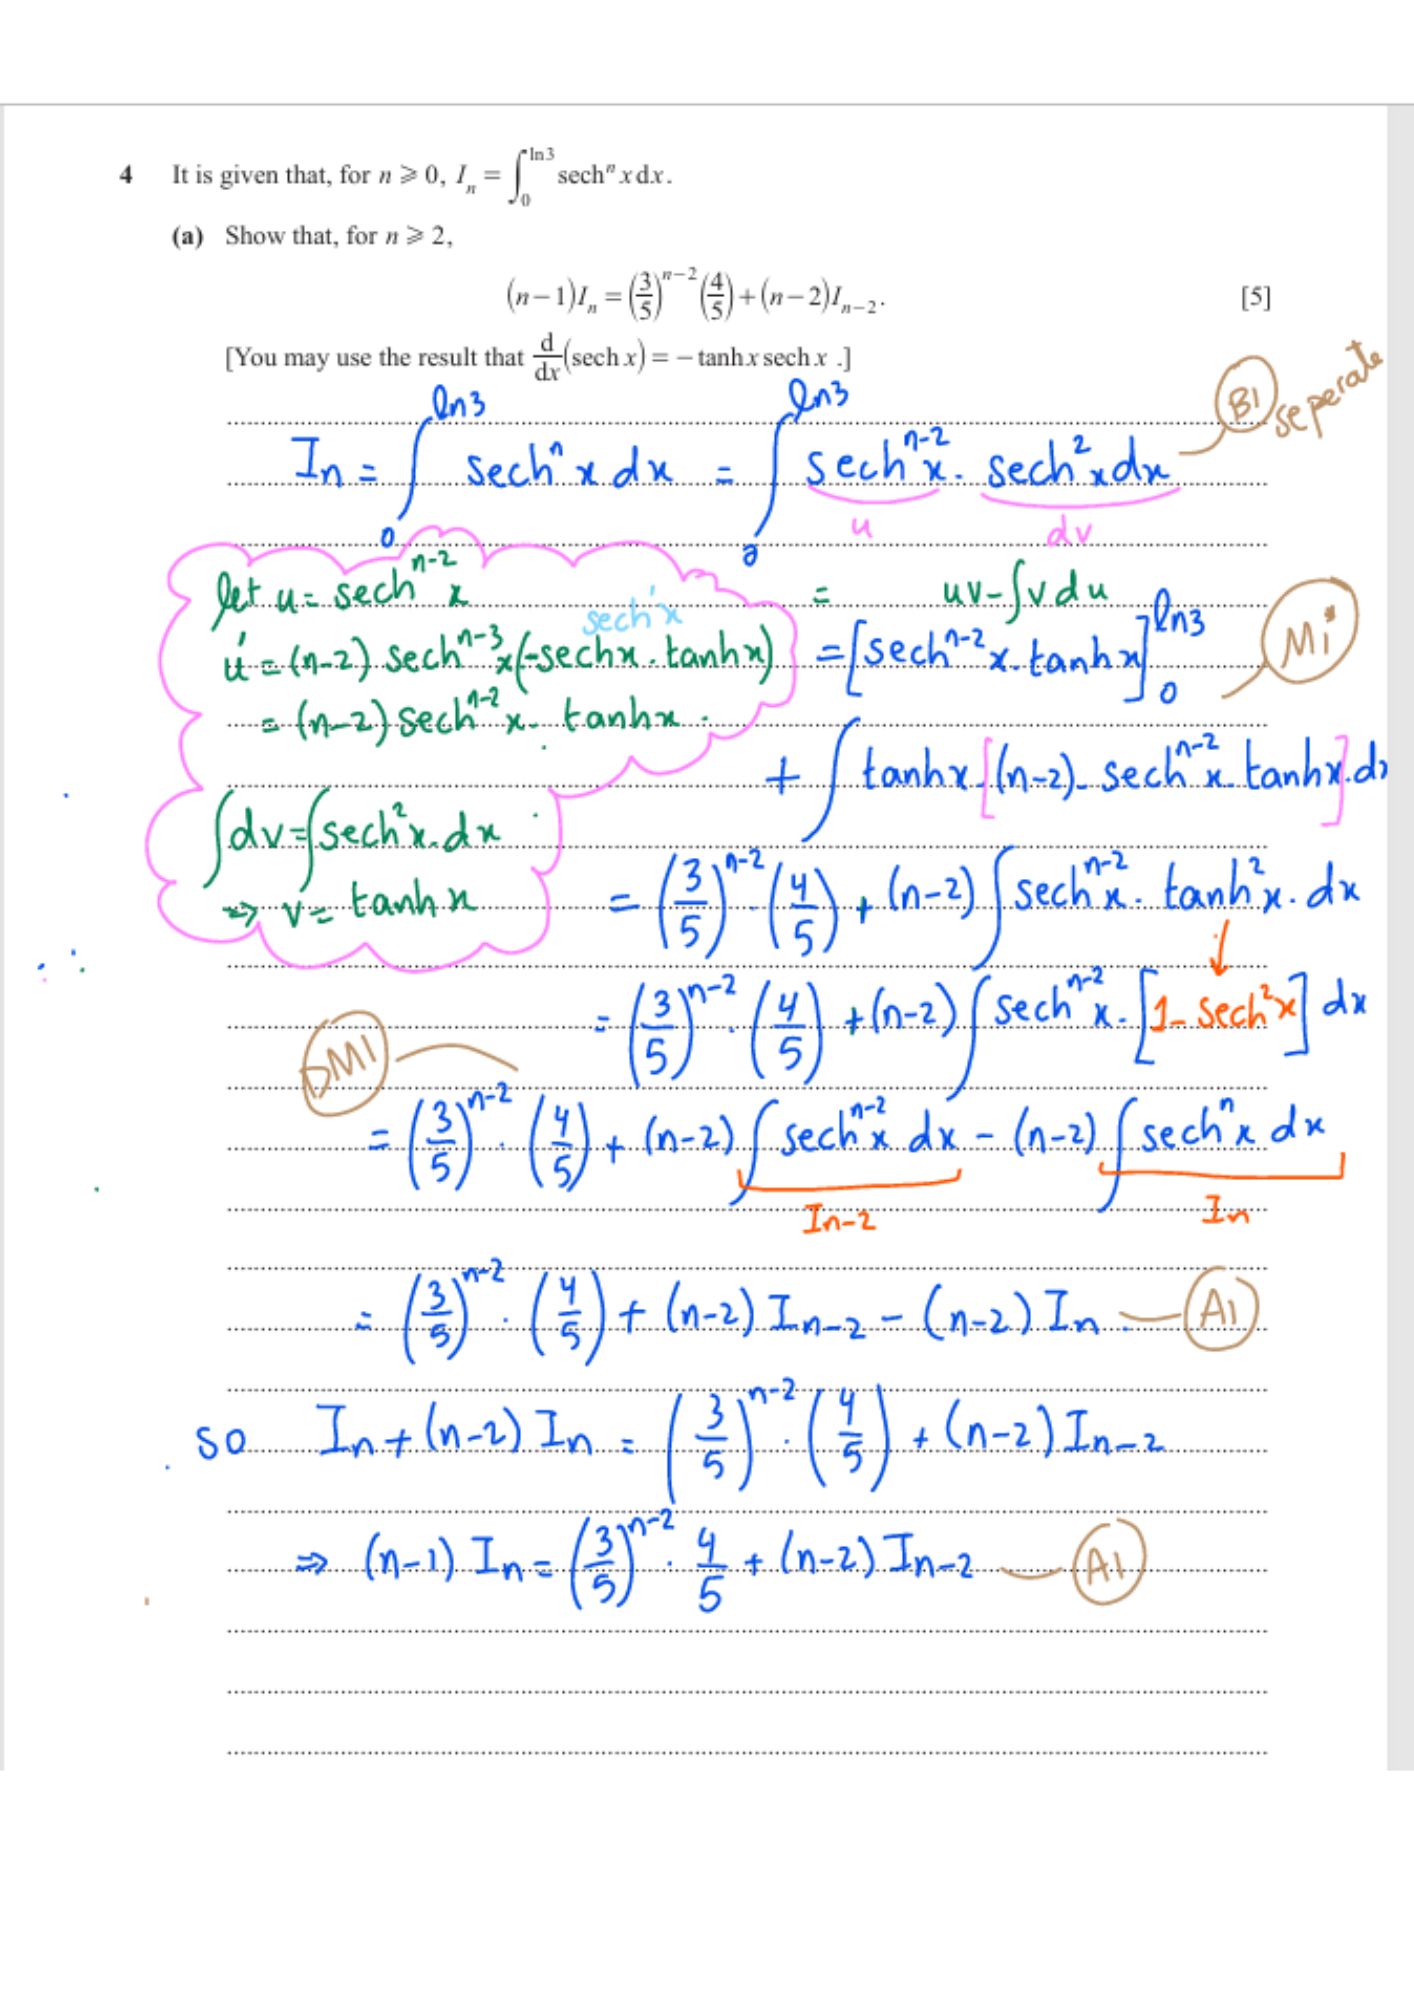 4 It is given that, for n ⩾ 0, Iₙ = ∫₀^{ln3} sechⁿ x dx.
(a) Show that, for n ⩾ 2,
(n−1)Iₙ = (3/5)^{n−2} (4/5) + (n−2)I_{n−2}. [5]
[You may use the result that d/dx (sech x) = − tanh x sech x .]
Iₙ = ∫₀^{ln3} sechⁿ x dx = ∫₀^{ln3} sech^{n-2} x . sech² x dx B1 seperate
u dv
let u = sech^{n-2} x
= uv - ∫v du
sech'x
u' = (n-2) sech^{n-3} x (-sech x . tanh x)
= [sech^{n-2} x . tanh x]₀^{ln3} M1
= (n-2) sech^{n-2} x . tanh x .
+ ∫ tanh x . [(n-2) . sech^{n-2} x . tanh x] . dx
∫dv = ∫sech² x . dx
⇒ v = tanh x
= (3/5)^{n-2} . (4/5) + (n-2) ∫ sech^{n-2} x . tanh² x . dx
↓
= (3/5)^{n-2} . (4/5) + (n-2) ∫ sech^{n-2} x . [1 - sech² x] dx
DM1
= (3/5)^{n-2} . (4/5) + (n-2) ∫ sech^{n-2} x dx - (n-2) ∫ sechⁿ x dx
In-2 In
= (3/5)^{n-2} . (4/5) + (n-2) I_{n-2} - (n-2) Iₙ . A1
so Iₙ + (n-2) Iₙ = (3/5)^{n-2} . (4/5) + (n-2) I_{n-2}
⇒ (n-1) Iₙ = (3/5)^{n-2} . 4/5 + (n-2) I_{n-2} A1